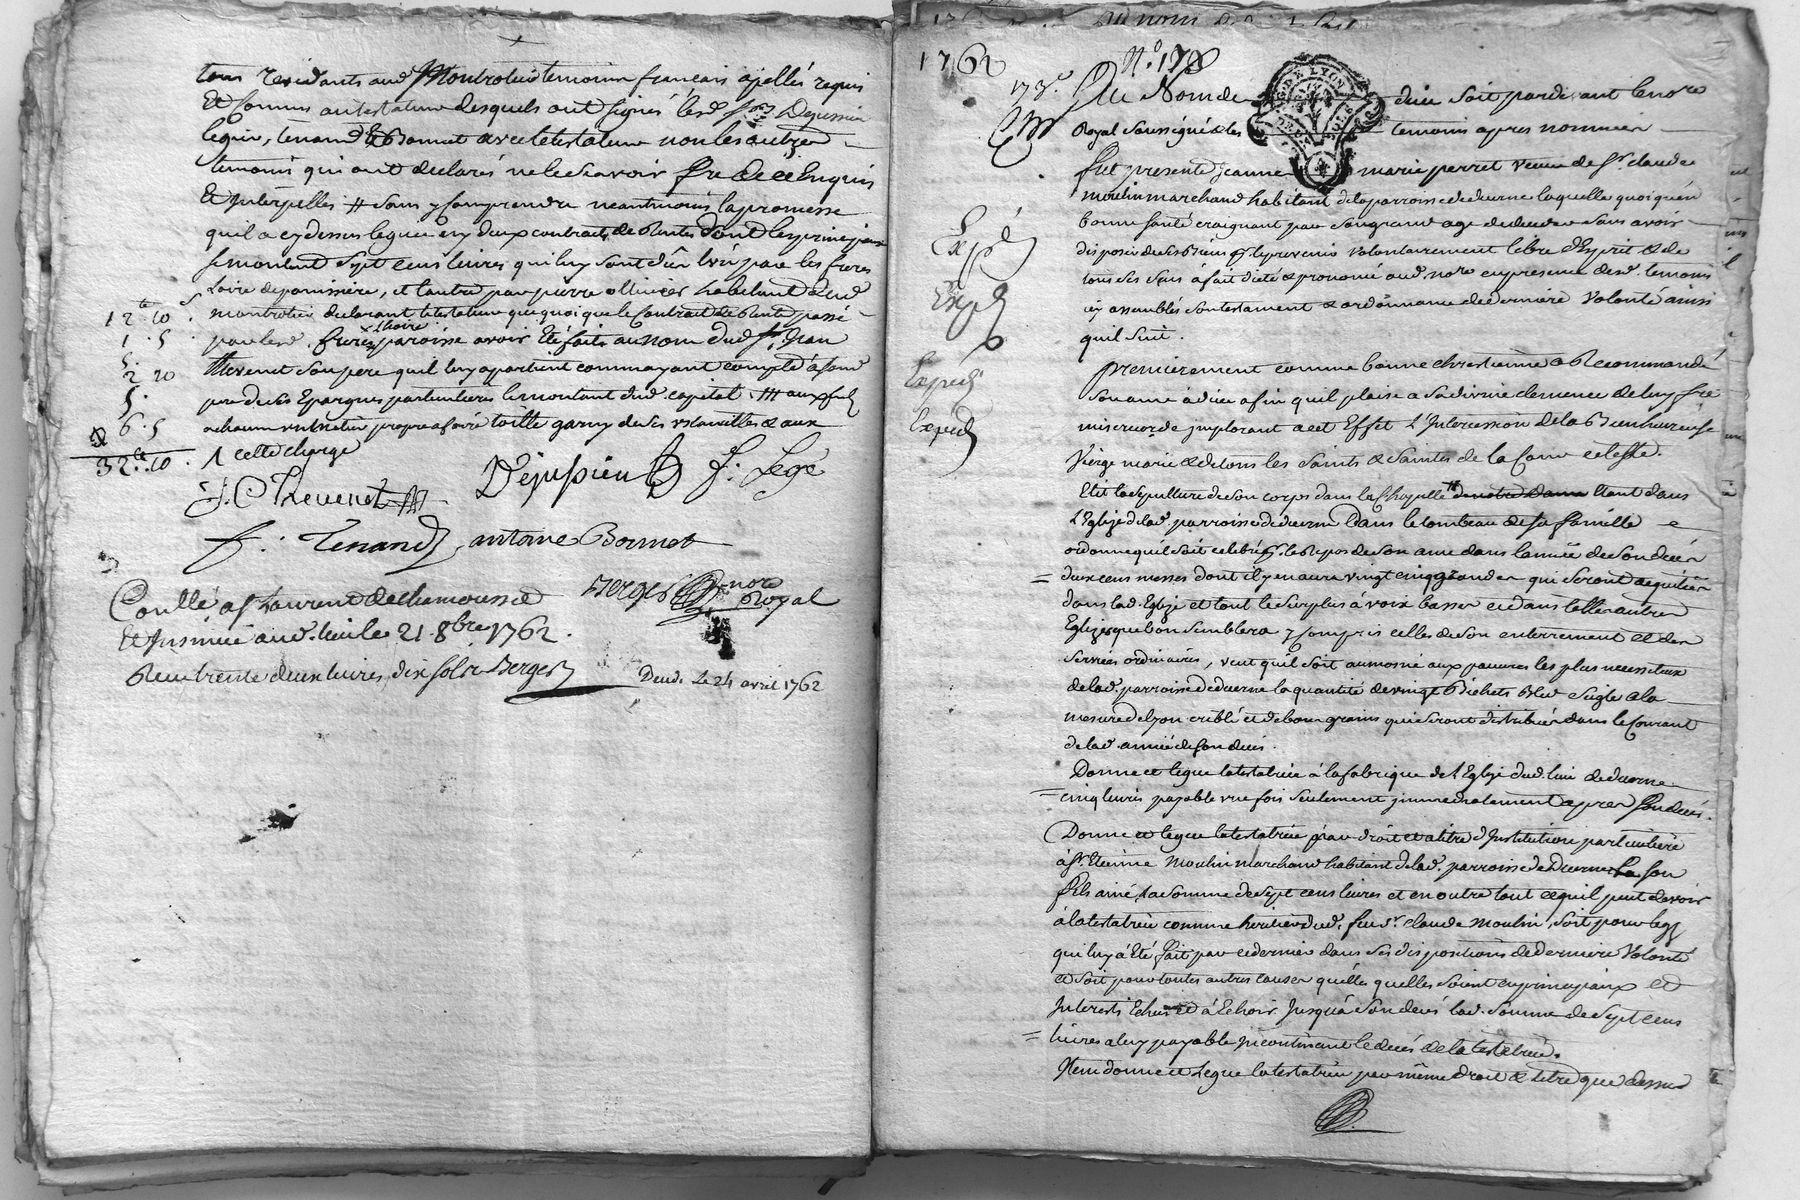 tous residants aud Montrotier temoins français apellés requis
Et sommés au testateur desquels ont signés lesd. Srs Dejussieu
legier, tenand & Bonnet avec le testateur non les autres
temoins qui ont declarés ne le sçavoir fre de ce Enquis
Et Interpellés # sans y comprendre neantmoins la promesse
quil a cy dessus leguée ny deux contracts de rentes dont les principaux
se montent sept cens livres qui luy sont dûs l'un par les freres
loire de parroissiere, et l'autre par pierre ollivier habitant dud
montrotier declarant le testateur que quoique le contract de rente passé
par lesd. freres loire paroisse avoir Eté fait au nom dud Sr. Jean
thevenet son pere quil luy apartient commayant compté à sond
pere de ses Epargnes particulieres le montant dud. capital. ### aux fes
a chacun un metier propre a faire toille garny de ses ustancilles & aux
12 lt 10 s.
1 . 5
5.
2 10
5.
6 . 5
32 lt. 10.
1 cette charge
J. Thevenet ###
Dejussieu
f. Legé
f. Tenand
antoine Bonnet
Berger nore Royal
Conllé a St Laurent de chamousset
Et Insinué aud. lieu le 21. 8bre 1762.
Reçu trente deux livres, dix sols Berger
Deud. Le 24 avril 1762
1762
No. 178
173e
Au Nom de dieu soit pardevant le nore
Royal soussigné & les temoins apres nommés
fut presente jeanne marie perret veuve de Sr. claude
moulin marchand habitant de la parroisse de duerne laquelle quoiqu'en
bonne santé craignant par son grand age de deceder sans avoir
disposé de ses biens volontairement libre d'Esprit & de
tous ses sens a fait dicté & prononcé aud. nore en presence desd. temoins
icy assemblés son testament & ordonnance de derniere volonté ainsi
quil suit.
Expé
Expd
Expedi
Expedi
premierement comme bonne chrestienne a Recommandé
son ame à dieu afin quil plaise a sa divine clemence de luy fre
misericorde jmplorant a cet Effet l'Intercession de la Bienheureuse
Vierge marie & de tous les saints & saintes de la Cour celeste.
Elit la sepulture de son corps dans la chapelle de notre dame Etant dans
l'Eglize de lad. parroisse de duerne dans le tombeau de sa famille
ordonne quil soit celebré pr. le repos de son ame dans l'année de son decés
deux cens messes dont il y en aura vingt cinq grandes qui seront acquitées
dans lad. Eglize et tout le surplus à voix basses et dans telles autres
Eglizes que bon semblera y compris celles de son enterrement et des
services ordinaires, veut quil soit aumosné aux pauvres les plus necessiteux
de lad. parroisse de duerne la quantité de vingt Bichets Bled seigle à la
mesure de lyon criblé et de bons grains qui seront distribués dans le courant
de lad. année de son decés.
Donne et legue la testatrice à la fabrique de l'Eglize dud. lieu de duerne
cinq livres payable une fois seulement jmmediatement apres son decés.
Donne et legue la testatrice par droit et à titre d'Institution particuliere
à Sr. Etienne Moulin marchand habitant de lad. parroisse de Duerne son
fils ainé, la somme de sept cens livres et en outre tout ce quil peut devoir
à la testatrice comme heritier dud. feu Sr. claude Moulin, soit pour legs
qui luy à Eté fait par ce dernier dans ses dispositions de derniere Volonté
et soit pour toutes autres causes quelles quelles soient en principaux et
Interests Echus et à Echoir Jusquà son decés lad. somme de sept cens
livres a luy payable Incontinant le decés de la testatrice.
Item donne et legue la testatrice par même droit & titre que dessus